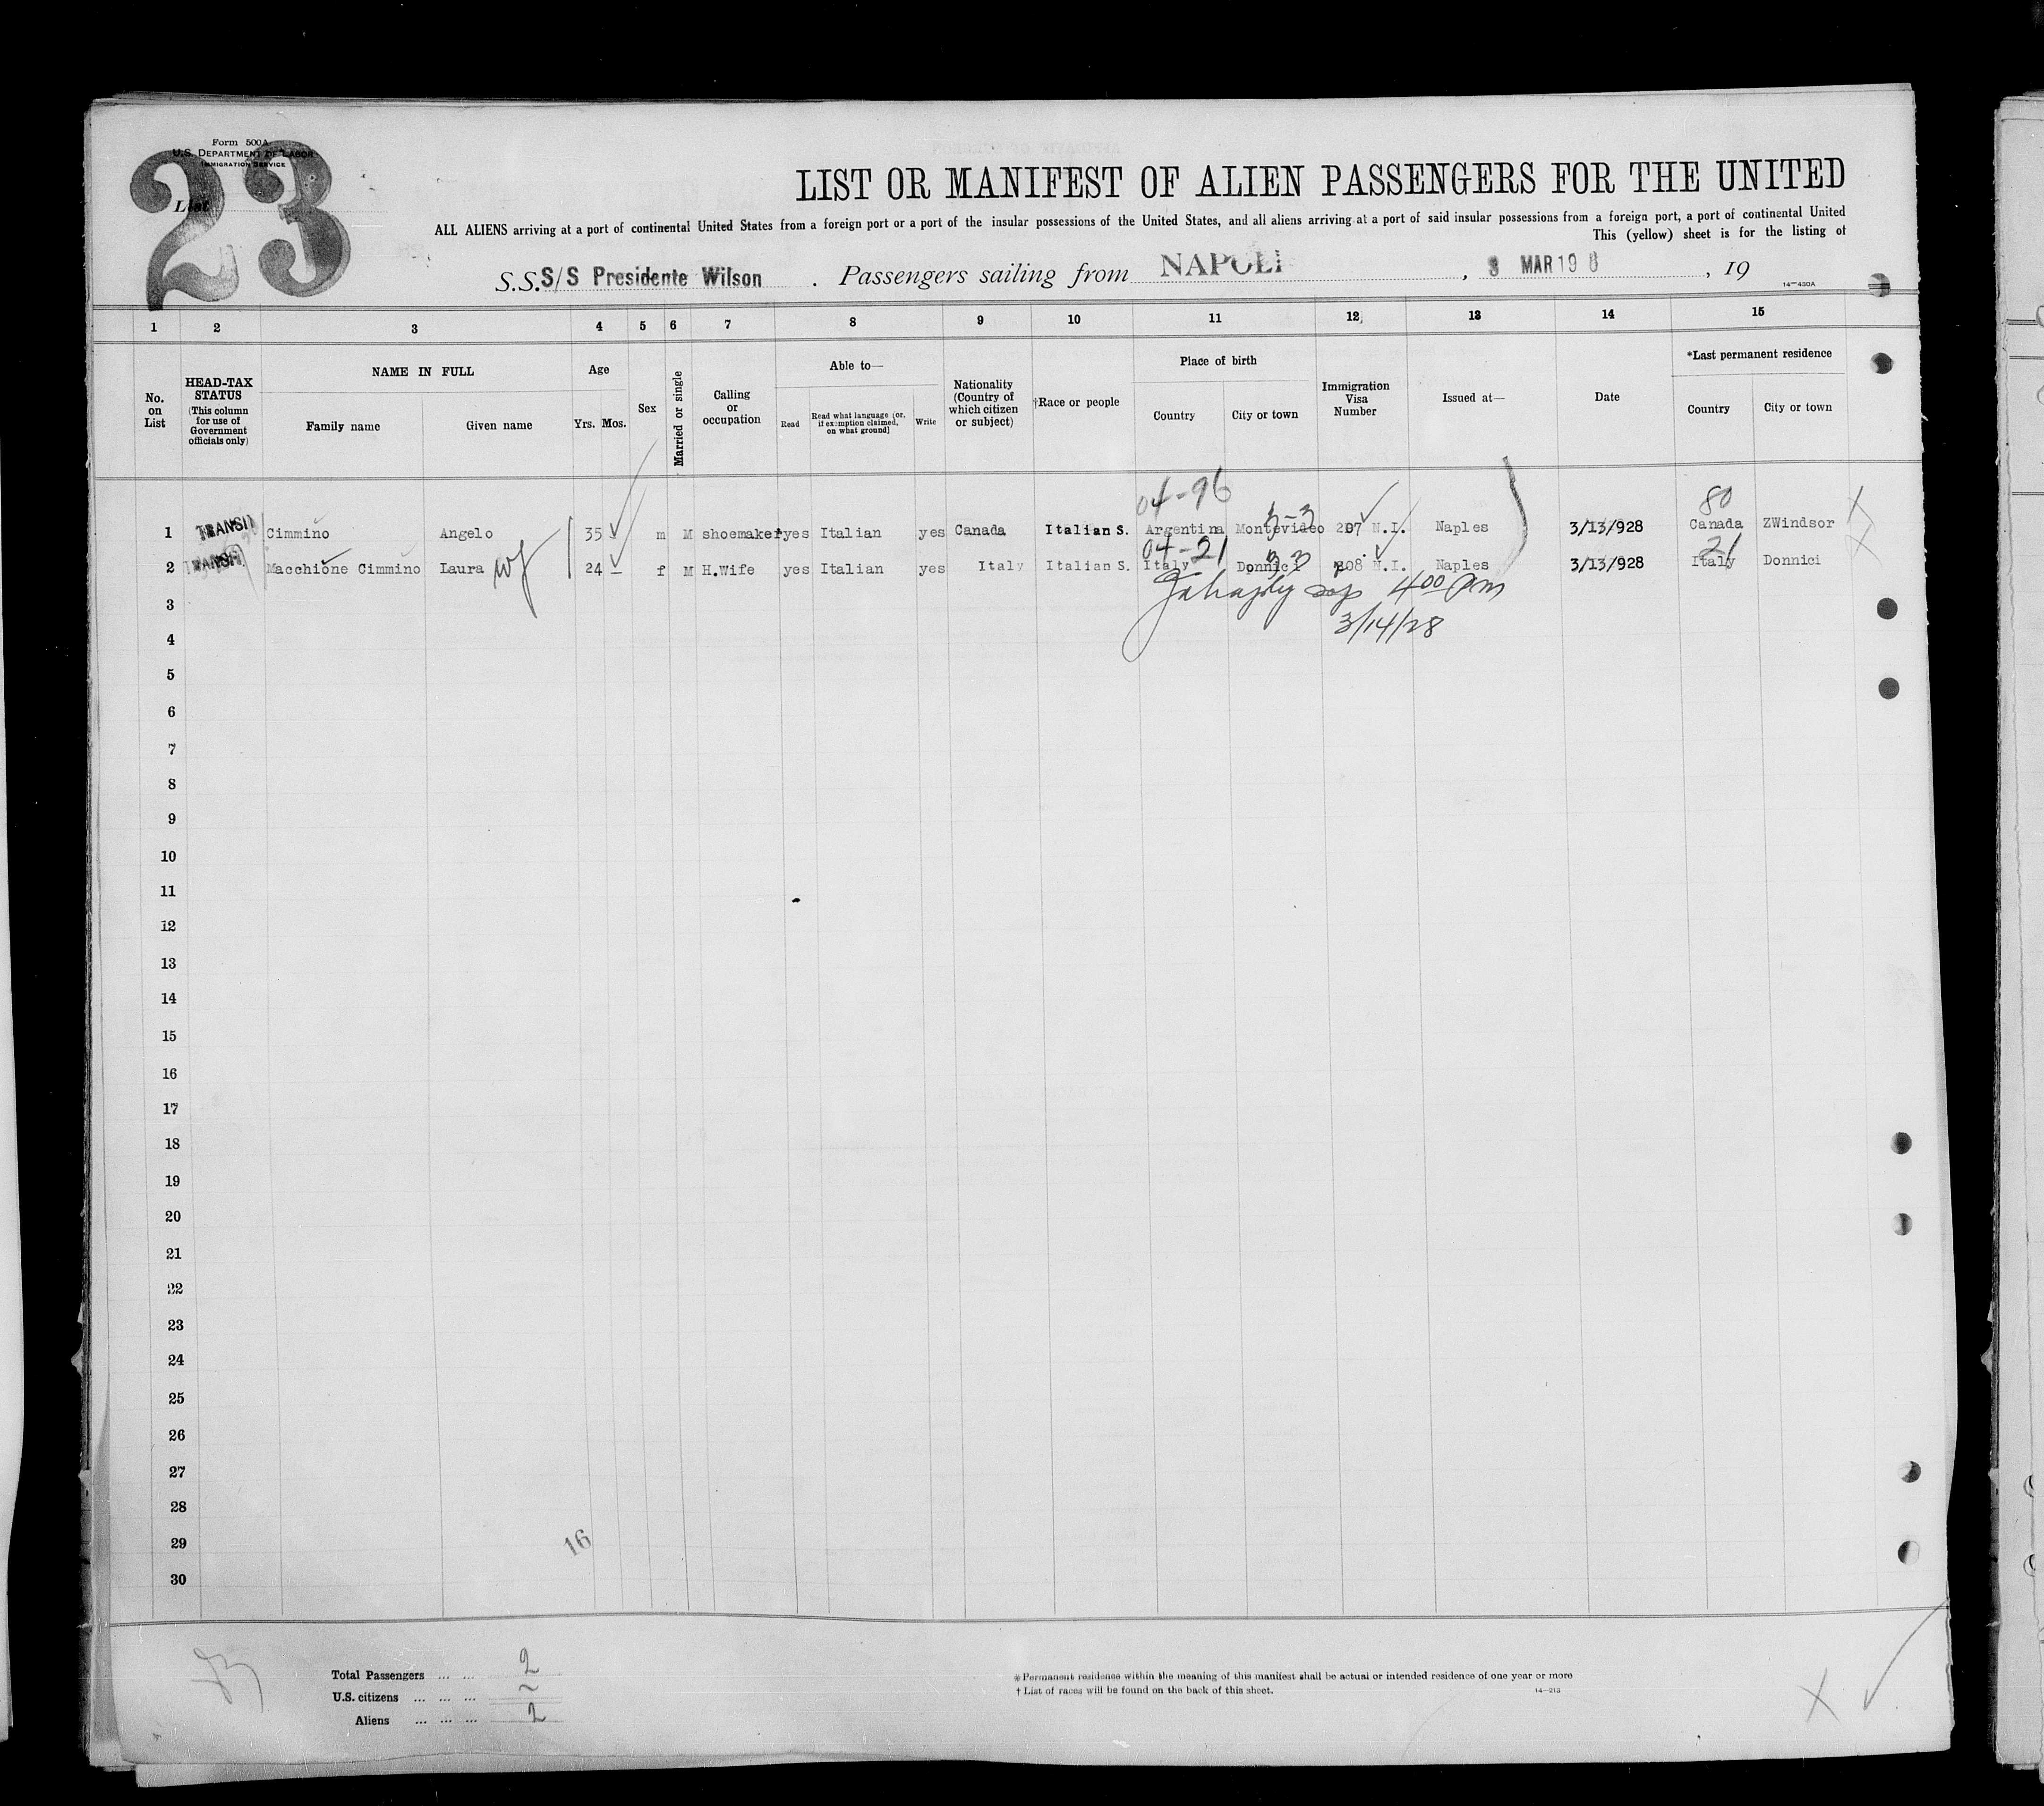 Form 500A
U.S. DEPARTMENT OF LABOR
IMMIGRATION SERVICE
23
List
LIST OR MANIFEST OF ALIEN PASSENGERS FOR THE UNITED
ALL ALIENS arriving at a port of continental United States from a foreign port or a port of the insular possessions of the United States, and all aliens arriving at a port of said insular possessions from a foreign port, a port of continental United
This (yellow) sheet is for the listing of
S.S. S/S Presidente Wilson . Passengers sailing from NAPOLI , 3 MAR 19 8 , 19
14—430A
1 2 3 4 5 6 7 8 9 10 11 12 13 14 15
No. on List
HEAD-TAX STATUS (This column for use of Government officials only)
NAME IN FULL
Family name Given name
Age
Yrs. Mos.
Sex
Married or single
Calling or occupation
Able to—
Read Read what language [or, if exemption claimed, on what ground] Write
Nationality (Country of which citizen or subject)
†Race or people
Place of birth
Country City or town
Immigration Visa Number
Issued at—
Date
*Last permanent residence
Country City or town
04-96 3-3 80
1 TRANSIT Cimmino Angelo 35 m M shoemaker yes Italian yes Canada Italian S. Argentina Montevideo 207 N.I. Naples 3/13/928 Canada ZWindsor
04-21 33 21
2 TRANSIT Macchione Cimmino Laura wf 24 f M H.Wife yes Italian yes Italy Italian S. Italy Donnici 208 N.I. Naples 3/13/928 Italy Donnici
3 4 00 pm
3/14/28
4
5
6
7
8
9
10
11
12
13
14
15
16
17
18
19
20
21
22
23
24
25
26
27
28
29
16
30
Total Passengers ... ... 2
U.S. citizens ... ... ... ~
Aliens ... ... ... 2
* Permanent residence within the meaning of this manifest shall be actual or intended residence of one year or more
† List of races will be found on the back of this sheet.
14—213